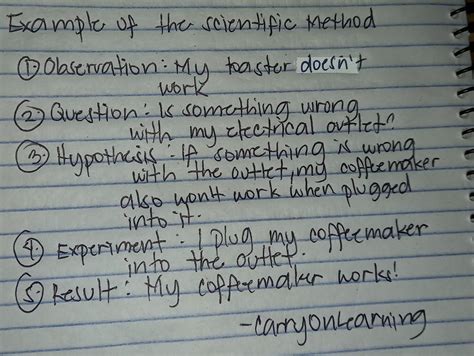 Example of the scientific Method
① Observation: My toaster doesn't
work
② Question: Is something wrong
with my electrical outlet?
③ Hypothesis: If something is wrong
with the outlet, my coffeemaker
also won't work when plugged
into it.
④ Experiment: I plug my coffeemaker
into the outlet.
⑤ Result: My coffeemaker works!
-carryonlearning